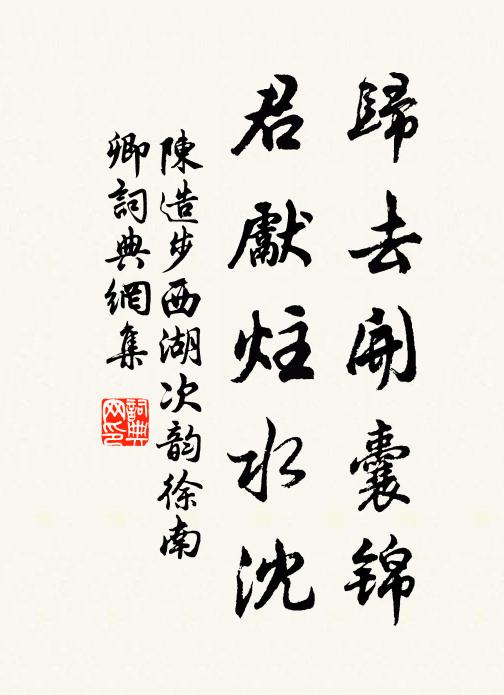 歸去開囊錦
君獻炷水沈
陳造步西湖次韵徐南
卿詞典網集
詞典
网印